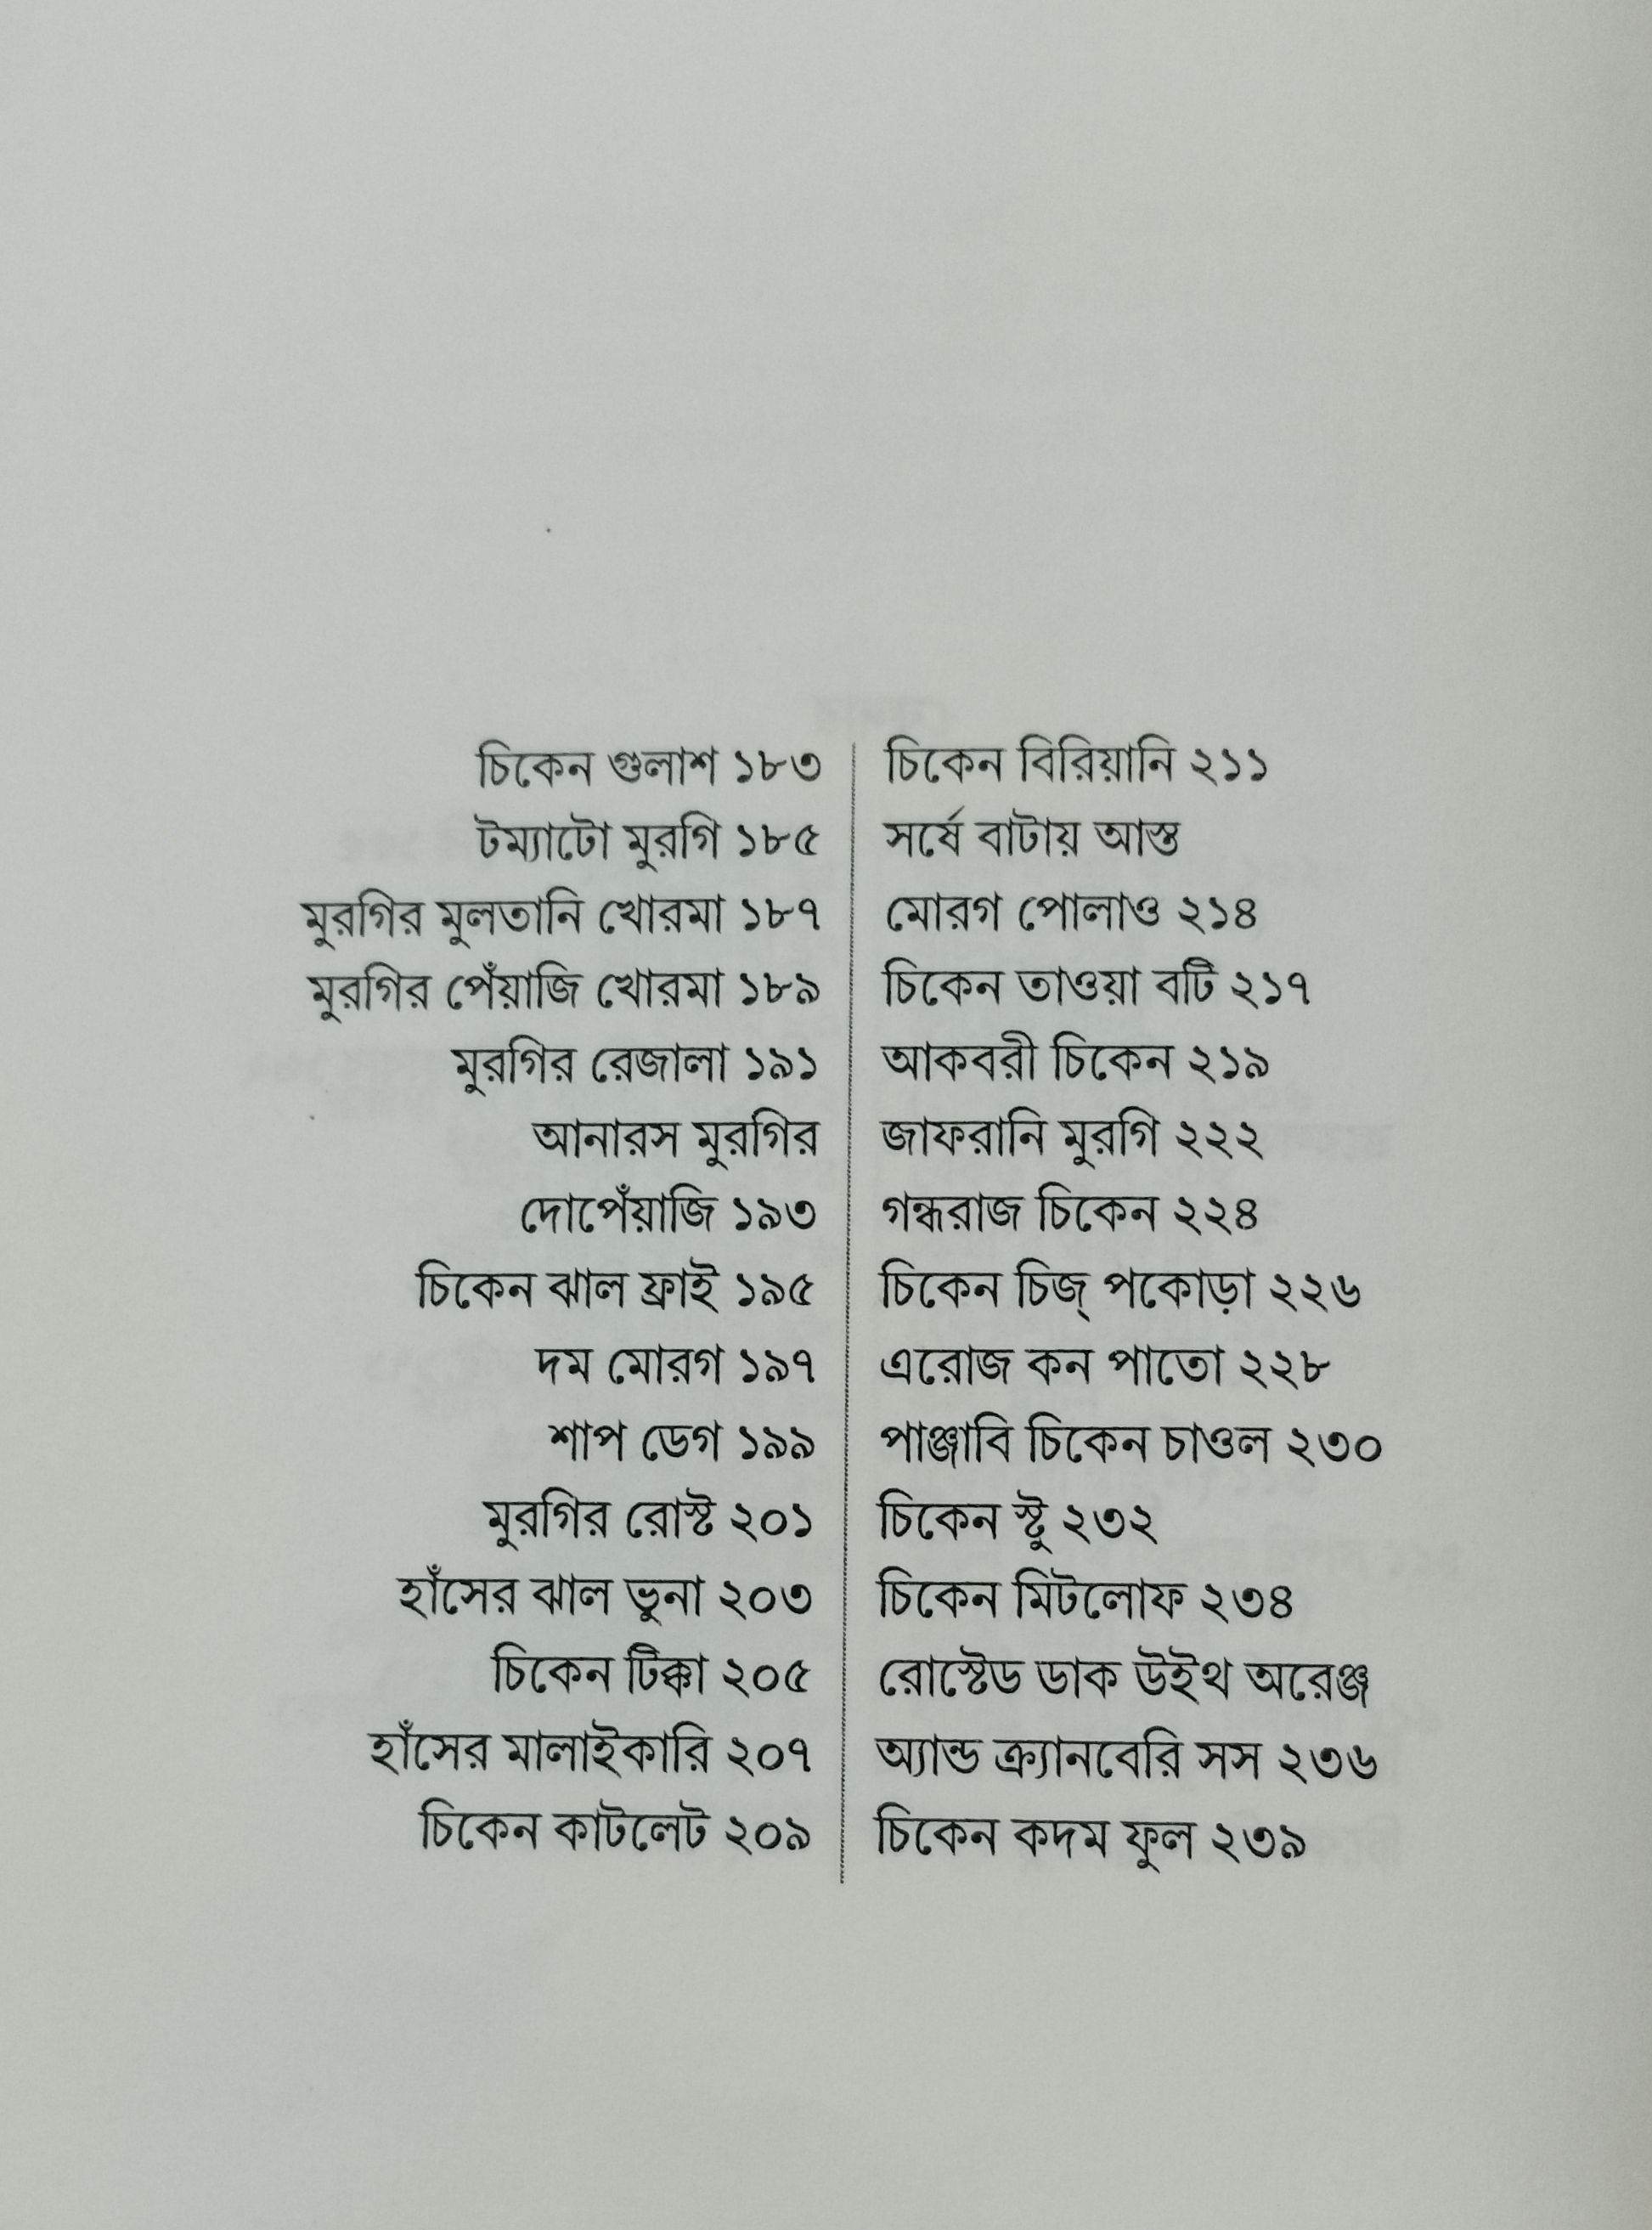 চিকেন গুলাশ ১৮৩
টম্যাটো মুরগি ১৮৫
মুরগির মুলতানি খোরমা ১৮৭
মুরগির পেঁয়াজি খোরমা ১৮৯
মুরগির রেজালা ১৯১
আনারস মুরগির
দোপেঁয়াজি ১৯৩
চিকেন ঝাল ফ্রাই ১৯৫
দম মোরগ ১৯৭
শাপ ডেগ ১৯৯
মুরগির রোস্ট ২০১
হাঁসের ঝাল ভুনা ২০৩
চিকেন টিক্কা ২০৫
হাঁসের মালাইকারি ২০৭
চিকেন কাটলেট ২০৯
চিকেন বিরিয়ানি ২১১
সর্ষে বাটায় আস্ত
মোরগ পোলাও ২১৪
চিকেন তাওয়া বটি ২১৭
আকবরী চিকেন ২১৯
জাফরানি মুরগি ২২২
গন্ধরাজ চিকেন ২২৪
চিকেন চিজ্ পকোড়া ২২৬
এরোজ কন পাতো ২২৮
পাঞ্জাবি চিকেন চাওল ২৩০
চিকেন স্টু ২৩২
চিকেন মিটলোফ ২৩৪
রোস্টেড ডাক উইথ অরেঞ্জ
অ্যান্ড ক্র্যানবেরি সস ২৩৬
চিকেন কদম ফুল ২৩৯